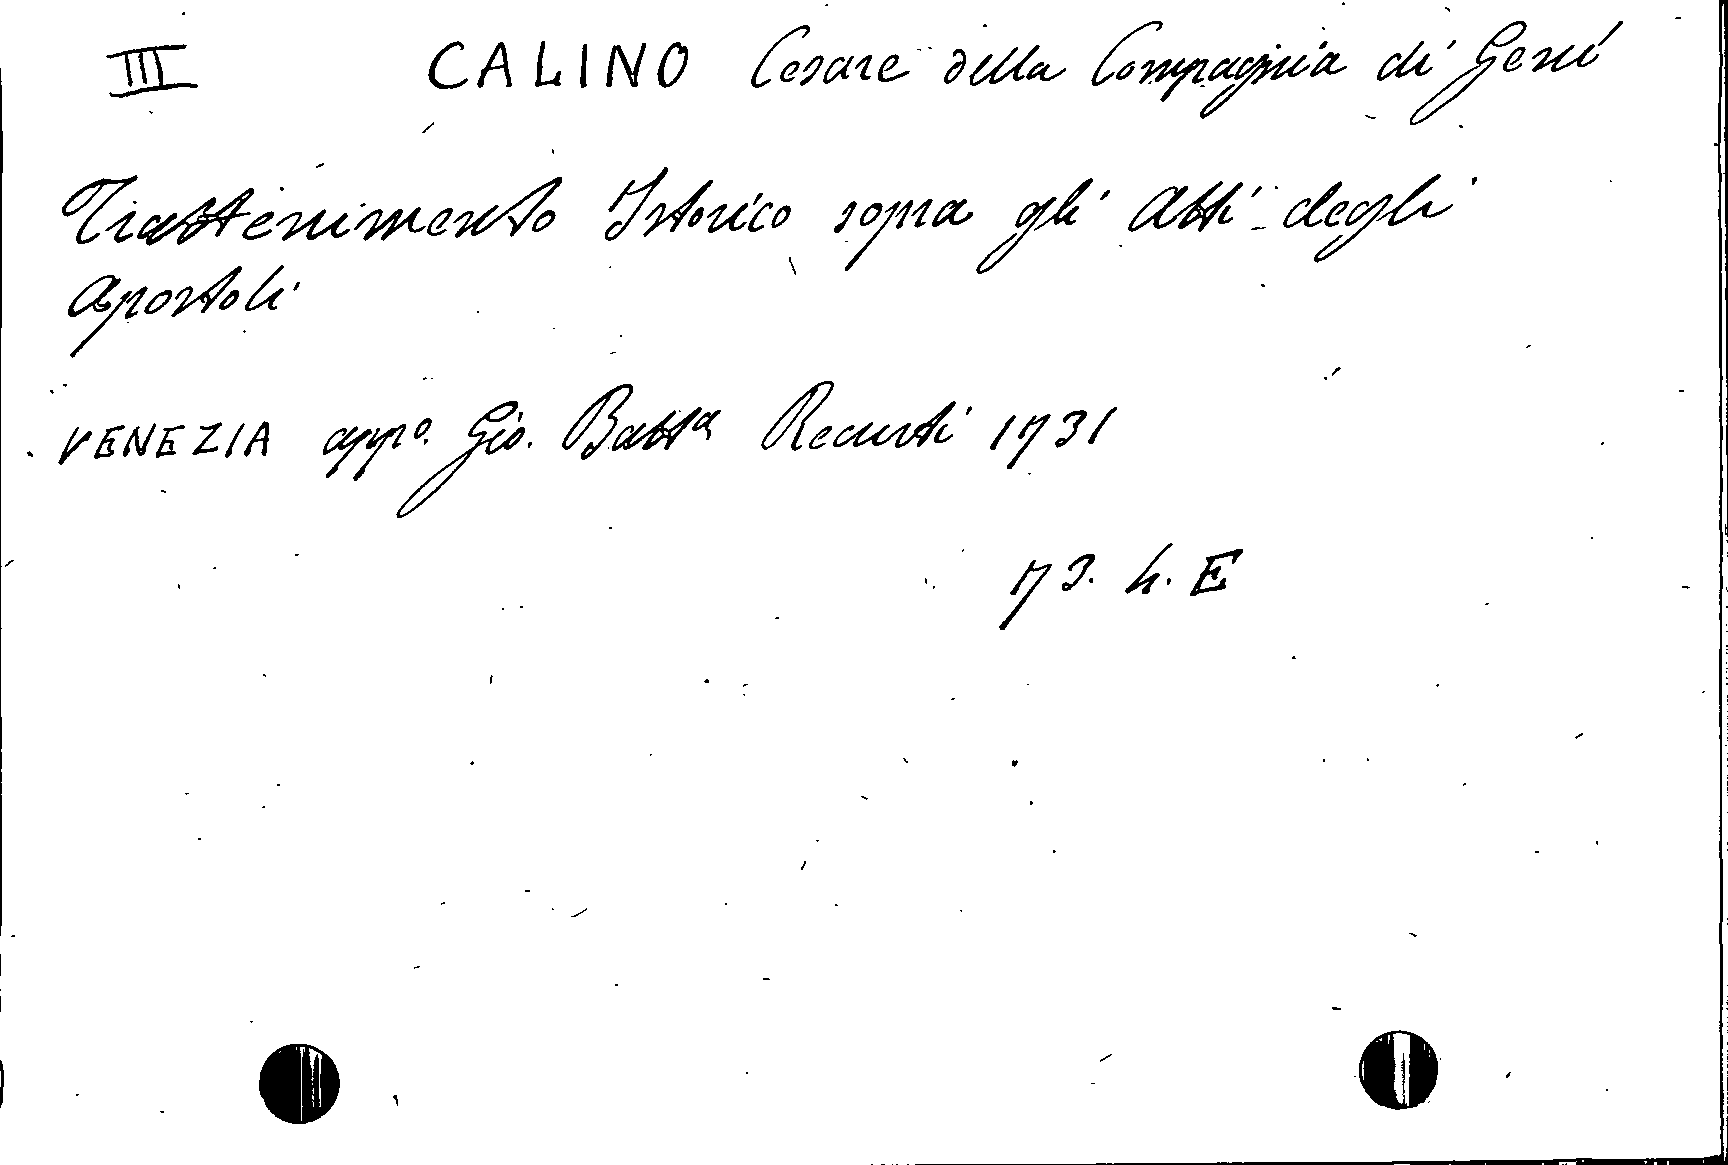 III CALINO Cesare della Compagnia di Gesú
Trattenimento Istorico sopra gli Atti degli
Apostoli
VENEZIA appo. Gio. Batta Recurti 1731
73. 4. E